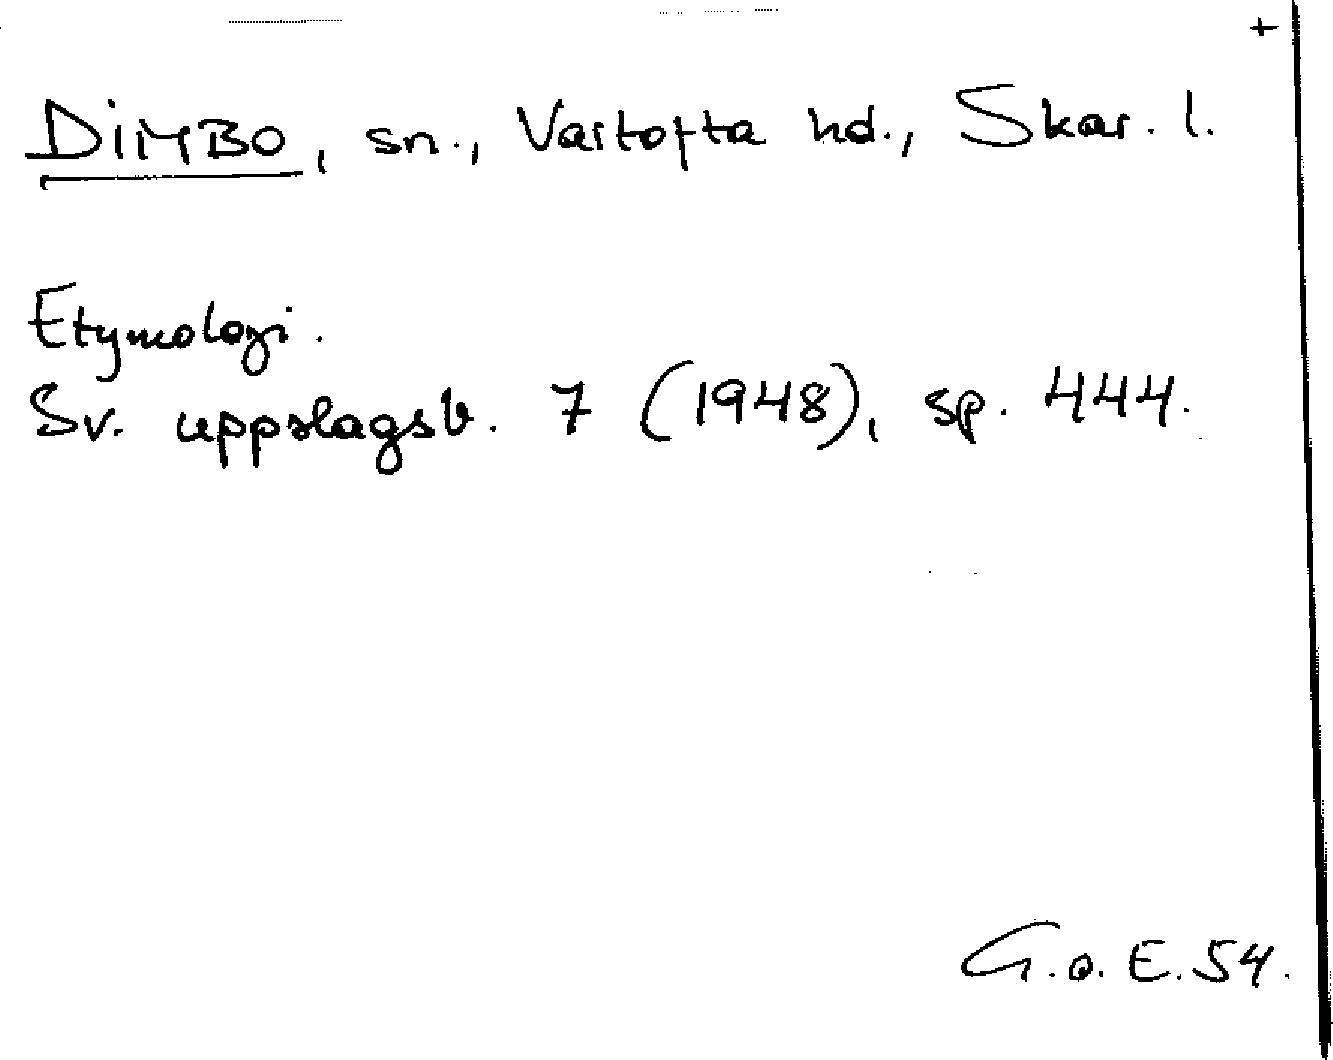 +
DIMBO, sn., Vartofta hd., Skar. l.
Etymologi.
Sv. uppslagsb. 7 (1948), sp. 444.
G.o.E. 54.